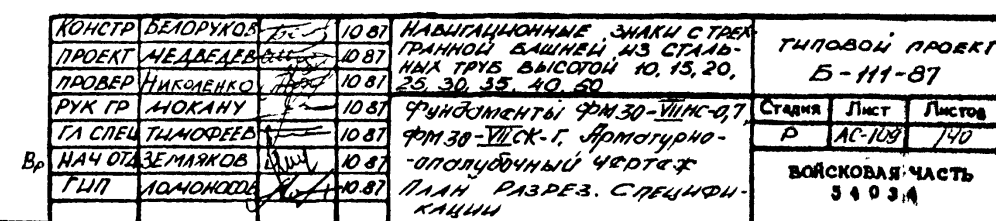 КОНСТР БЕЛОРУКОВ 10 87
ПРОЕКТ МЕДВЕДЕВ 10 87
ПРОВЕР НИКОЛЕНКО 10 87
РУК ГР МОКАНУ 10 87
ГЛ СПЕЦ ТИМОФЕЕВ 10 87
Вр НАЧ ОТД ЗЕМЛЯКОВ 10 87
ГИП ЛОМОНОСОВ 10.87
НАВИГАЦИОННЫЕ ЗНАКИ С ТРЕХ-
ГРАННОЙ БАШНЕЙ ИЗ СТАЛЬ-
НЫХ ТРУБ ВЫСОТОЙ 10, 15, 20,
25, 30, 35, 40, 50
Фундаменты ФМ30-VIIМС-0,7,
ФМ30-VIIСК-Г. Арматурно-
-опалубочный чертеж
ПЛАН РАЗРЕЗ. СПЕЦИФИ-
КАЦИИ
ТИПОВОЙ ПРОЕКТ
Б-111-87
Стадия Лист Листов
Р АС-109 140
ВОЙСКОВАЯ ЧАСТЬ
54034